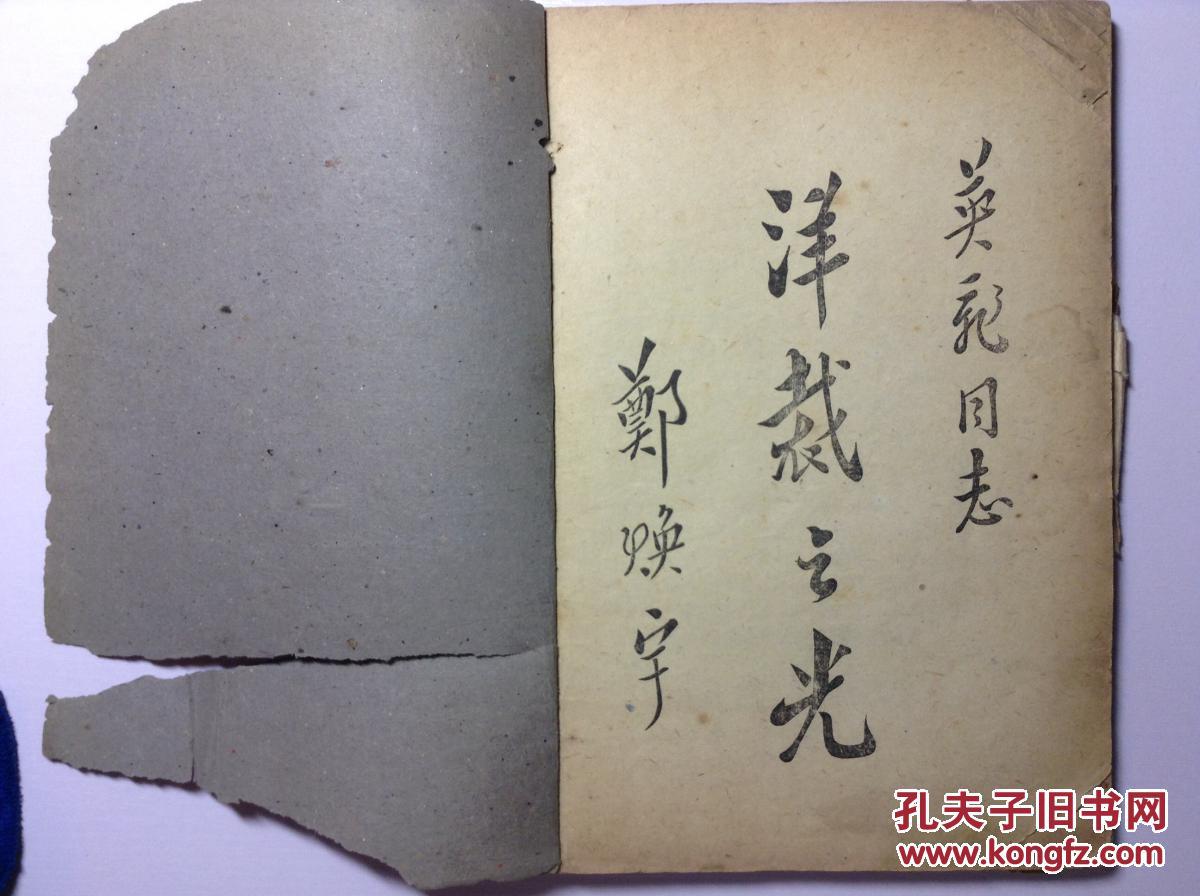 英 同志
洋裁之光
鄭煥宇
孔夫子旧书网
www.kongfz.com